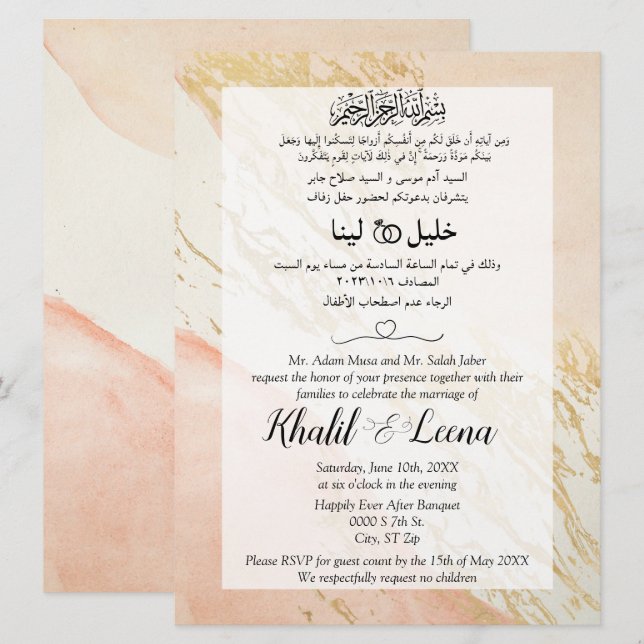 بسم الله الرحمن الرحيم
وَمِن آياتِهِ أَن خَلَقَ لَكُم مِن أَنفُسِكُم أَزواجًا لِتَسكُنوا إِلَيها وَجَعَلَ
بَينَكُم مَوَدَّةً وَرَحمَةً ۚ إِنَّ في ذٰلِكَ لَآياتٍ لِقَومٍ يَتَفَكَّرونَ
السيد آدم موسى و السيد صلاح جابر
يتشرفان بدعوتكم لحضور حفل زفاف
خليل لينا
وذلك في تمام الساعة السادسة من مساء يوم السبت
المصادف ٢٠٢٣\١٠\٦
الرجاء عدم اصطحاب الأطفال
Mr. Adam Musa and Mr. Salah Jaber
request the honor of your presence together with their
families to celebrate the marriage of
Khalil & Leena
Saturday, June 10th, 20XX
at six o'clock in the evening
Happily Ever After Banquet
0000 S 7th St.
City, ST Zip
Please RSVP for guest count by the 15th of May 20XX
We respectfully request no children